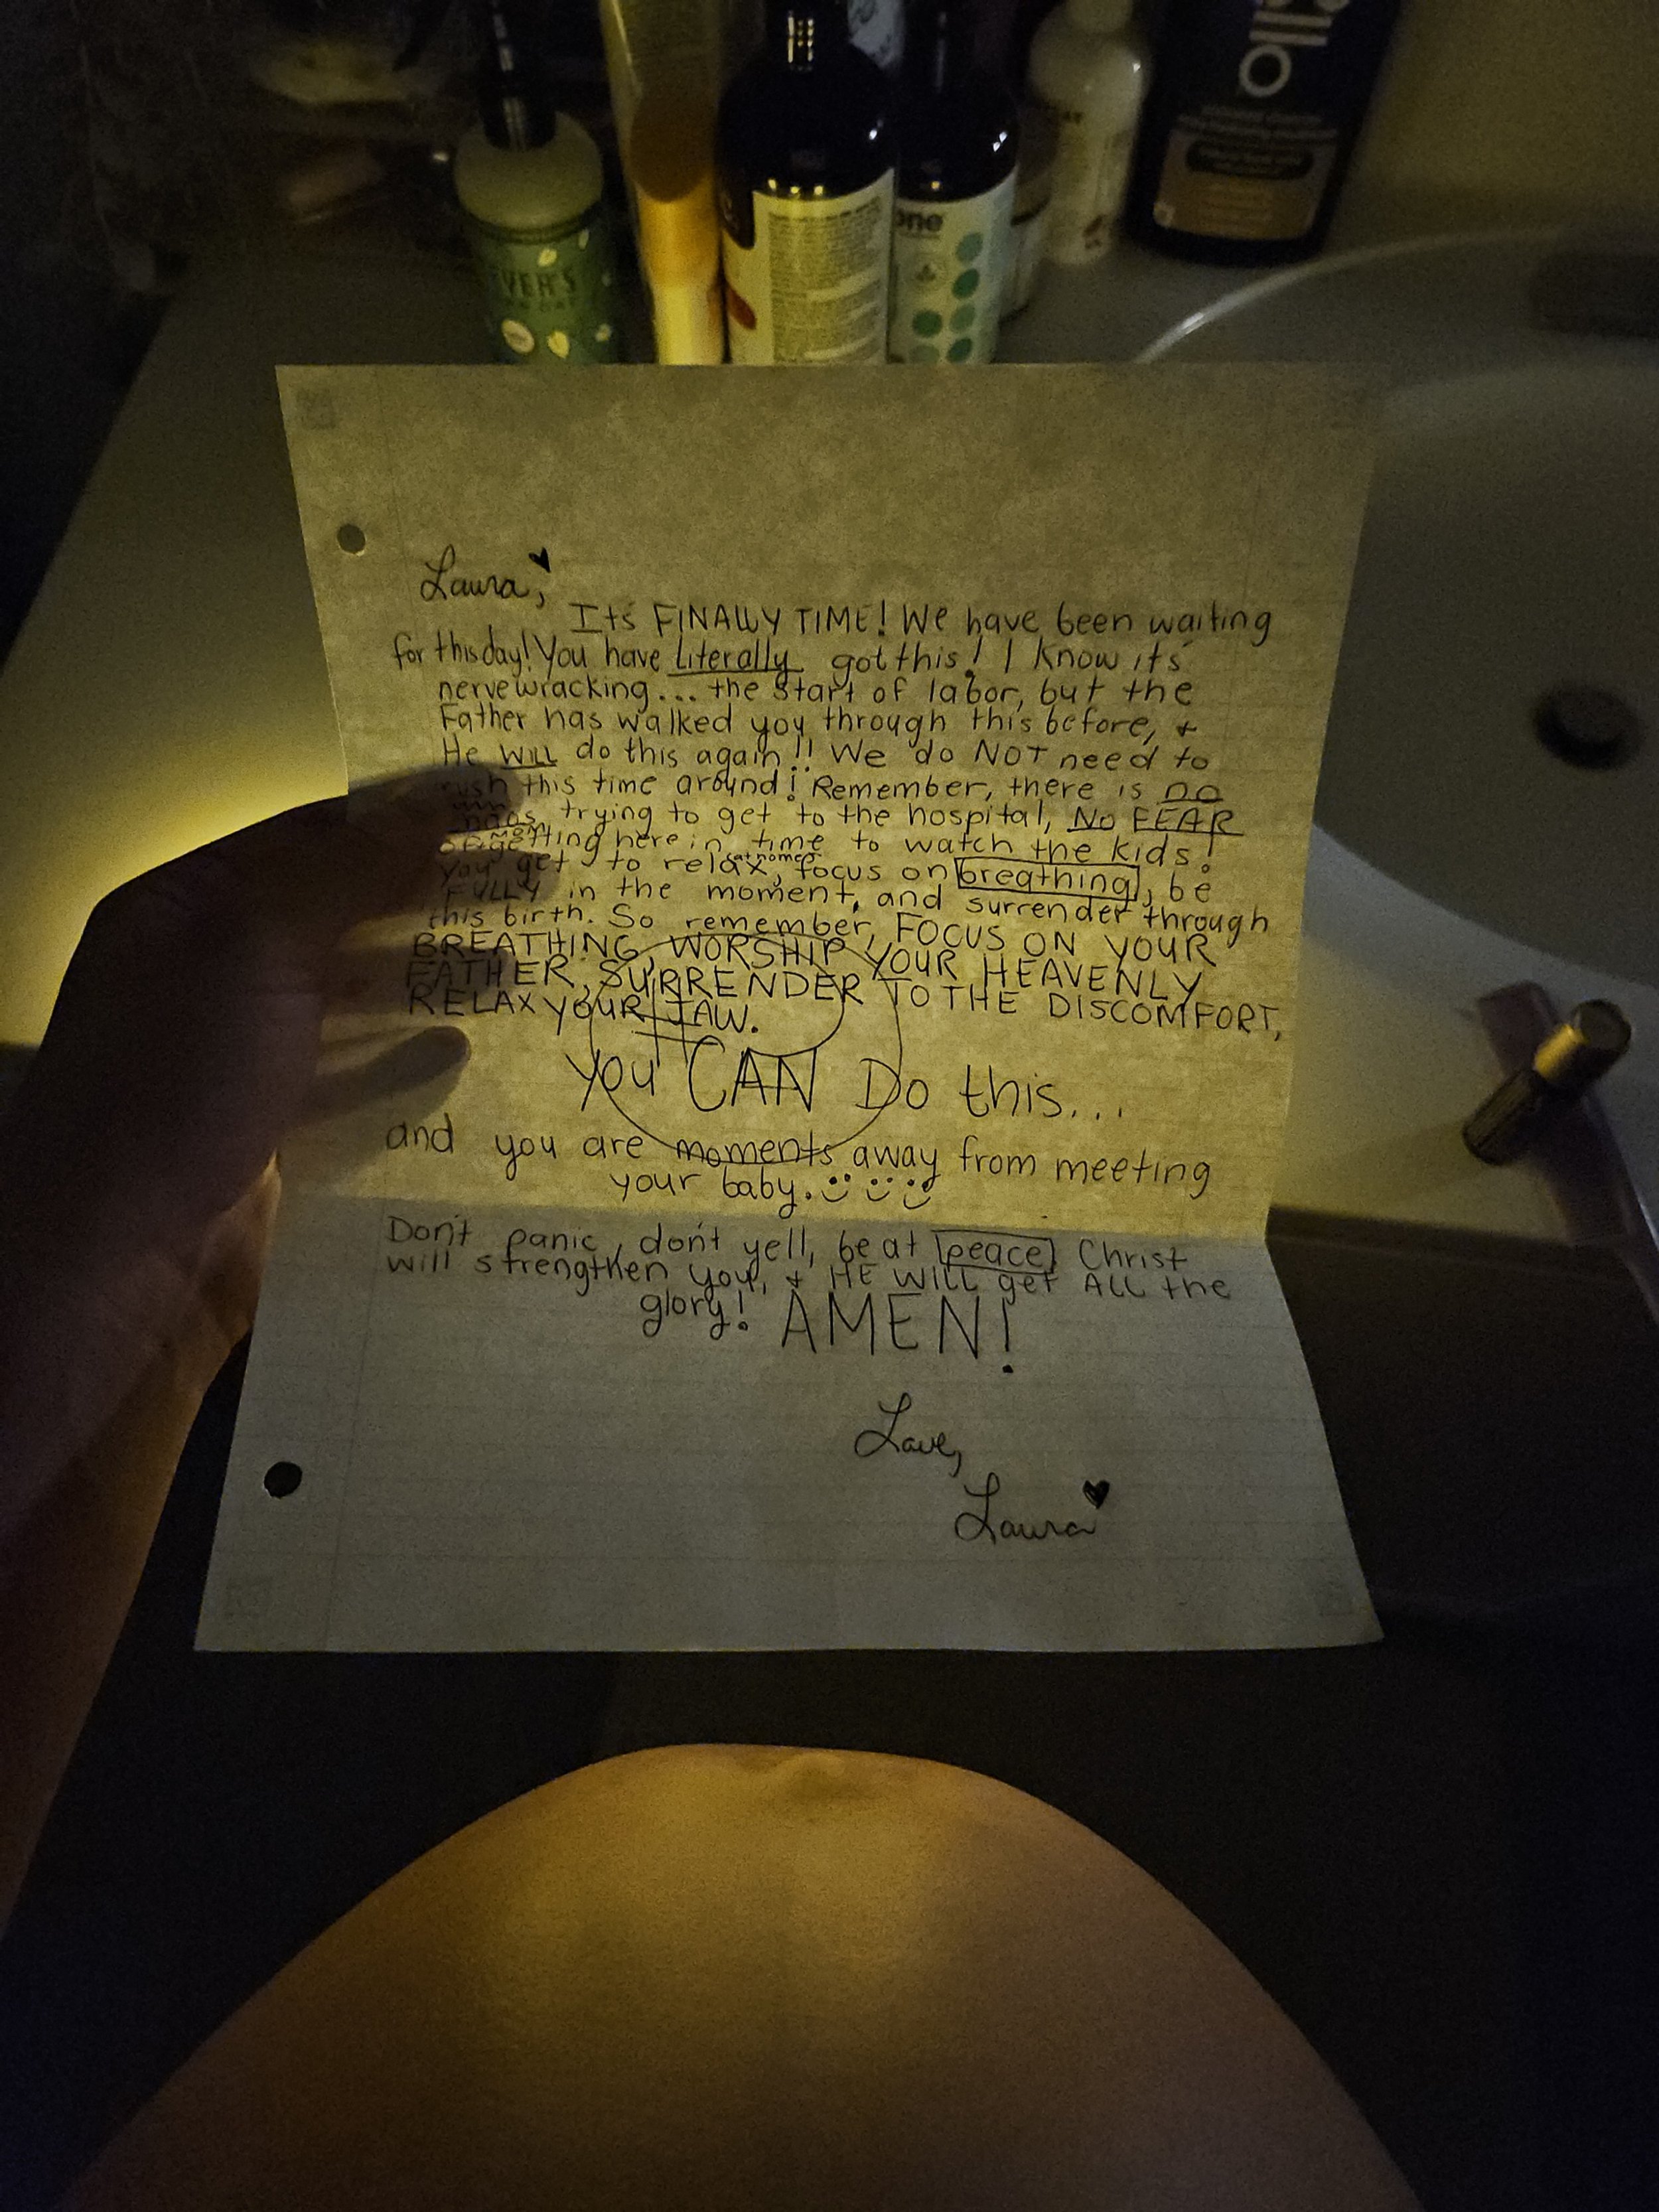 VER'S
one
llo
Laura,
Its FINALLY TIME! We have been waiting
for this day! You have Literally got this! I know its
nervewracking... the start of labor, but the
Father has walked you through this before, +
He WILL do this again!! We do NOT need to
rush this time around! Remember, there is no
trying to get to the hospital, NO FEAR
of mom getting here in time to watch the kids!
you get to relax, (at home) focus on breathing, be
FULLY in the moment, and surrender through
this birth. So remember, FOCUS ON YOUR
BREATHING, WORSHIP YOUR HEAVENLY
FATHER, SURRENDER TO THE DISCOMFORT,
RELAX YOUR JAW.
You CAN Do this...
and you are moments away from meeting
your baby.
Don't panic, don't yell, be at peace Christ
will strengthen you, + HE WILL get ALL the
glory! AMEN!
Love,
Laura